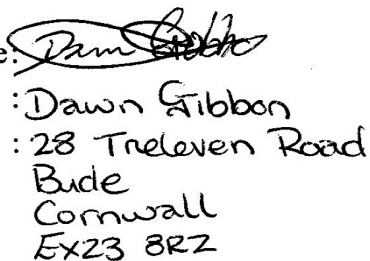 e:
: Dawn Gibbon
: 28 Treleven Road
Bude
Cornwall
EX23 8RZ